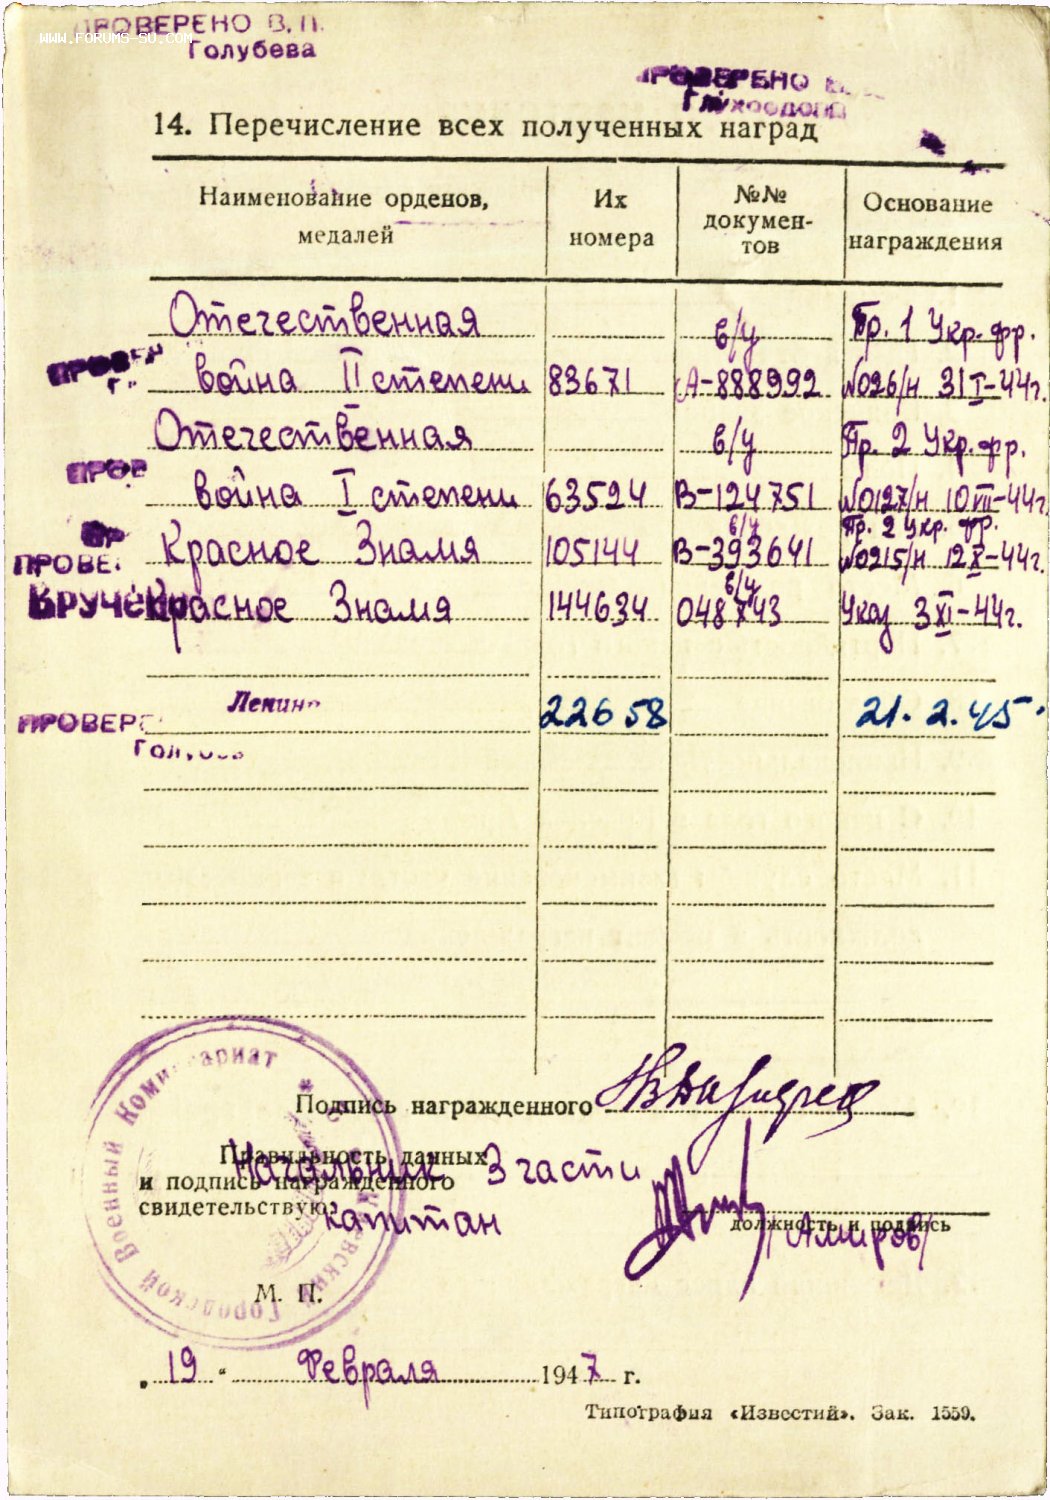 ПРОВЕРЕНО В. П.
WWW.FORUMS-SU.COM
Голубева
ПРОВЕРЕНО
14. Перечисление всех полученных наград
Наименование орденов, медалей
Их номера
№№ документов
Основание награждения
Отечественная в/у Пр. 1 Укр. фр.
война II степени 83671 А-888992 №026/н 31 I-44г.
Отечественная в/у Пр. 2 Укр. фр.
война I степени 63524 В-124751 №0127/н 10 VII-44г.
в/у Пр. 2 Укр. фр.
Красное Знамя 105144 В-393641 №0215/н 12 X-44г.
в/у
ВРУЧЕНО Красное Знамя 144634 048743 Указ 3 XI-44г.
Ленин 22658 21.2.45.
ПРОВЕРЕ
Подпись награжденного
Правильность данных
и подпись награжденного
свидетельствую:
Начальник 3 части
капитан
должность и подпись
/Амиров/
Городской Военный Комиссариат
М. П.
19 Февраля 1947 г.
Типография «Известий». Зак. 1559.